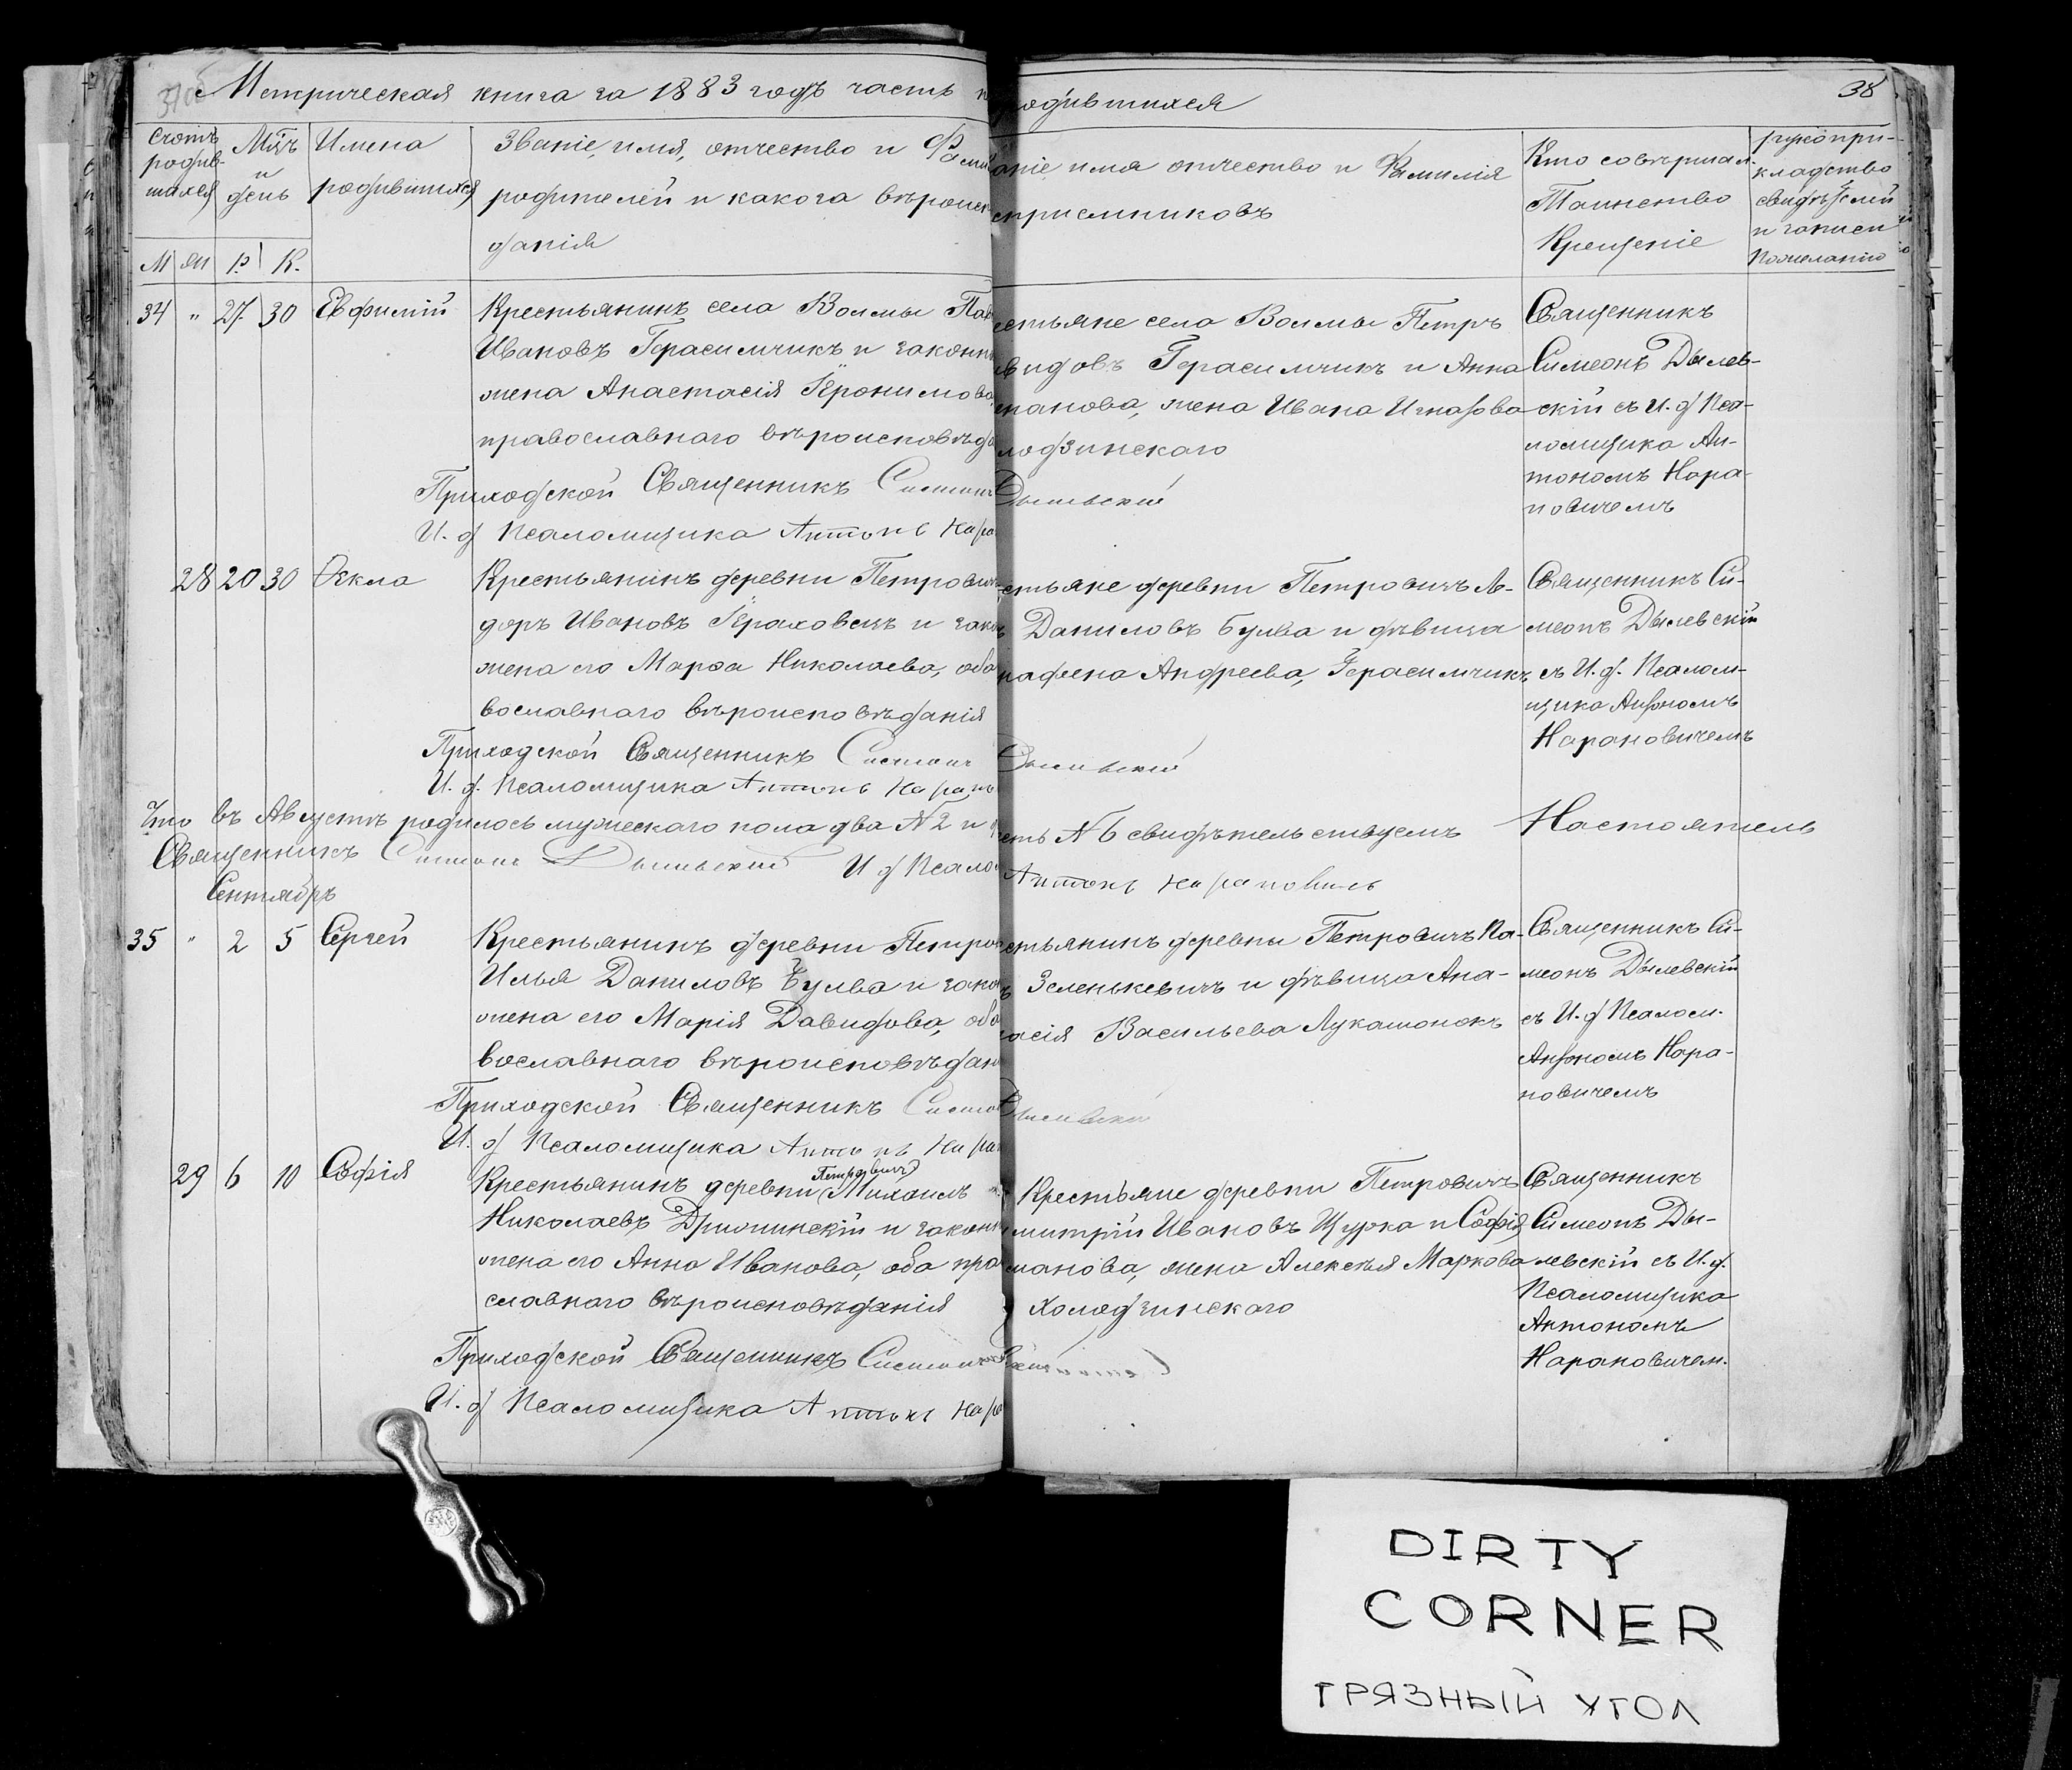 Метрическая книга за 1883 годъ часть
одившихся
38
Счетъ родив-шихся
Мѣц. и день
Имена родившихся
Званіе, имя, отчество и Фами
родителей и какога вѣроисп
данія
аніе имя отчество и Фамилія
сприемниковъ
Кто совѣршал.
Таинство
Крещеніе
рукопри-
кладство
свидѣтелей
и записи
пожеланію
М жи Р. К.
34 " 27. 30 Евфимій
Крестьянинъ села Волмы Пав
Ивановъ Герасимчикъ и законн
жена Анастасія Іеронимова,
православнаго вѣроисповѣд
Приходской Священникъ Симеон
И. д Псаломщика Антонъ Нара
естьяне села Волмы Петръ
видовъ Герасимчикъ и Анна
панова, жена Ивана Игнатова
лодзинскаго
Дылевский
Священникъ
Симеонъ Дылев-
скій съ И. д Пса-
ломщика Ан-
тономъ Нара-
новичемъ
28 20 30 Ѳекла
Крестьянинъ деревни Петрович
доръ Ивановъ Іераховецъ и закон
жена его Марѳа Николаева, оба
вославнаго вѣроисповѣданія
Приходской Священникъ Симеонъ
И. д. Псаломщика Антонъ Наран
естьяне деревни Петровичъ Ле-
Даниловъ Булва и дѣвица
рафена Андреева, Герасимчикъ
Дылевский
Священникъ Си-
меонъ Дылевскій
съ И. д. Псалом-
щика Антономъ
Нарановичемъ
Что въ Августѣ родилось мужескаго пола два № 2 и
есть № 6 свидѣтельствуемъ Настоятель
Священникъ Симеонъ Дылевский И д Псало
Антонъ Нарановичъ
Сентябрь
35 " 2 5 Сергей
Крестьянинъ деревни Петров
Илья Даниловъ Булва и закон
жена его Марія Давидова, оба
вославнаго вѣроисповѣдан
Приходской Священникъ Симео
И. д Псаломщика Антонъ Нара
естьянинъ деревни Петровичъ Па-
Зеленькевичъ и дѣвица Ана-
асія Васильева Лукашонокъ
Дылевский
Священникъ Си-
меонъ Дылевскій
съ И. д Псалом.
Антономъ Нара-
новичемъ
29 6 10 Софія
Петровичъ
Крестьянинъ деревни Михаилъ
Николаевъ Дрижинскій и законн
жена его Анна Иванова, оба пра
славнаго вѣроисповѣданія
Приходской Священникъ Симеонъ
И. д Псаломщика Антонъ Нара
Крестьяне деревни Петровичъ
митрій Ивановъ Щурка и Софія
манова, жена Алексѣя Маркова
Холодзинскаго
Священникъ
Симеонъ Ды-
левскій съ И. д.
Псаломщика
Антономъ
Нарановичем.
DIRTY
CORNER
ГРЯЗНЫЙ УГОЛ